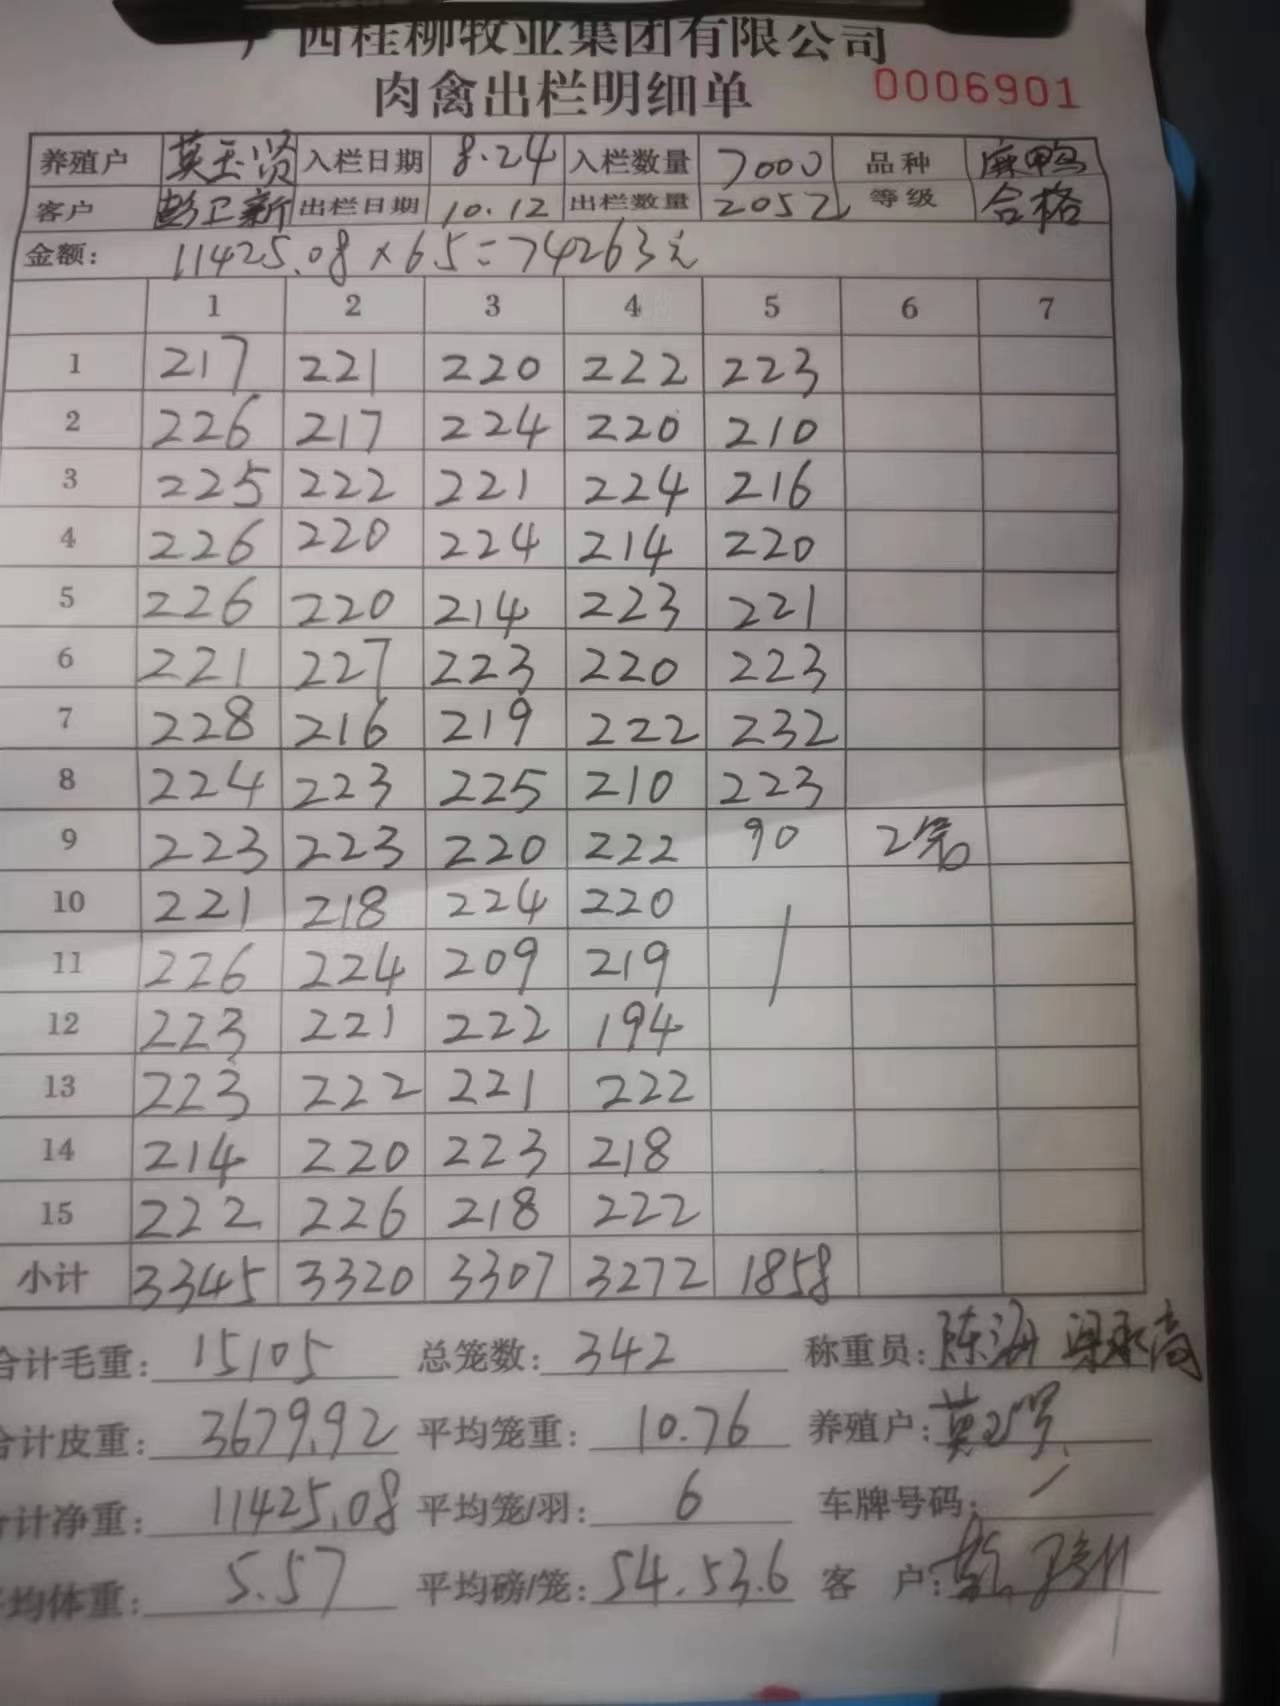 广西桂柳牧业集团有限公司
肉禽出栏明细单 0006901
养殖户 莫玉贤 入栏日期 8.24 入栏数量 7000 品种 麻鸭
客户 彭卫新 出栏日期 10.12 出栏数量 2052 等级 合格
金额: 11425.08×6.5=74263元
1 2 3 4 5 6 7
1 217 221 220 222 223
2 226 217 224 220 210
3 225 222 221 224 216
4 226 220 224 214 220
5 226 220 214 223 221
6 221 227 223 220 223
7 228 216 219 222 232
8 224 223 225 210 223
9 223 223 220 222 90 2笼
10 221 218 224 220
11 226 224 209 219
12 223 221 222 194
13 223 222 221 222
14 214 220 223 218
15 222 226 218 222
小计 3345 3320 3307 3272 1858
合计毛重: 15105 总笼数: 342 称重员: 陈海
合计皮重: 3679.92 平均笼重: 10.76 养殖户: 莫玉贤
合计净重: 11425.08 平均笼/羽: 6 车牌号码:
平均体重: 5.57 平均磅/笼: 54.53.6 客户: